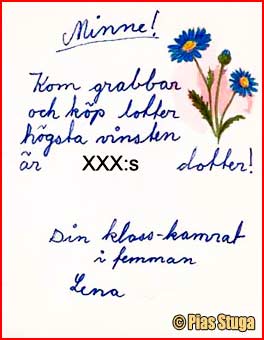 Minne!
Kom grabbar
och köp lotter
högsta vinsten
är XXX:s dotter!
Din klass-kamrat
i femman
Lena
© Pias Stuga